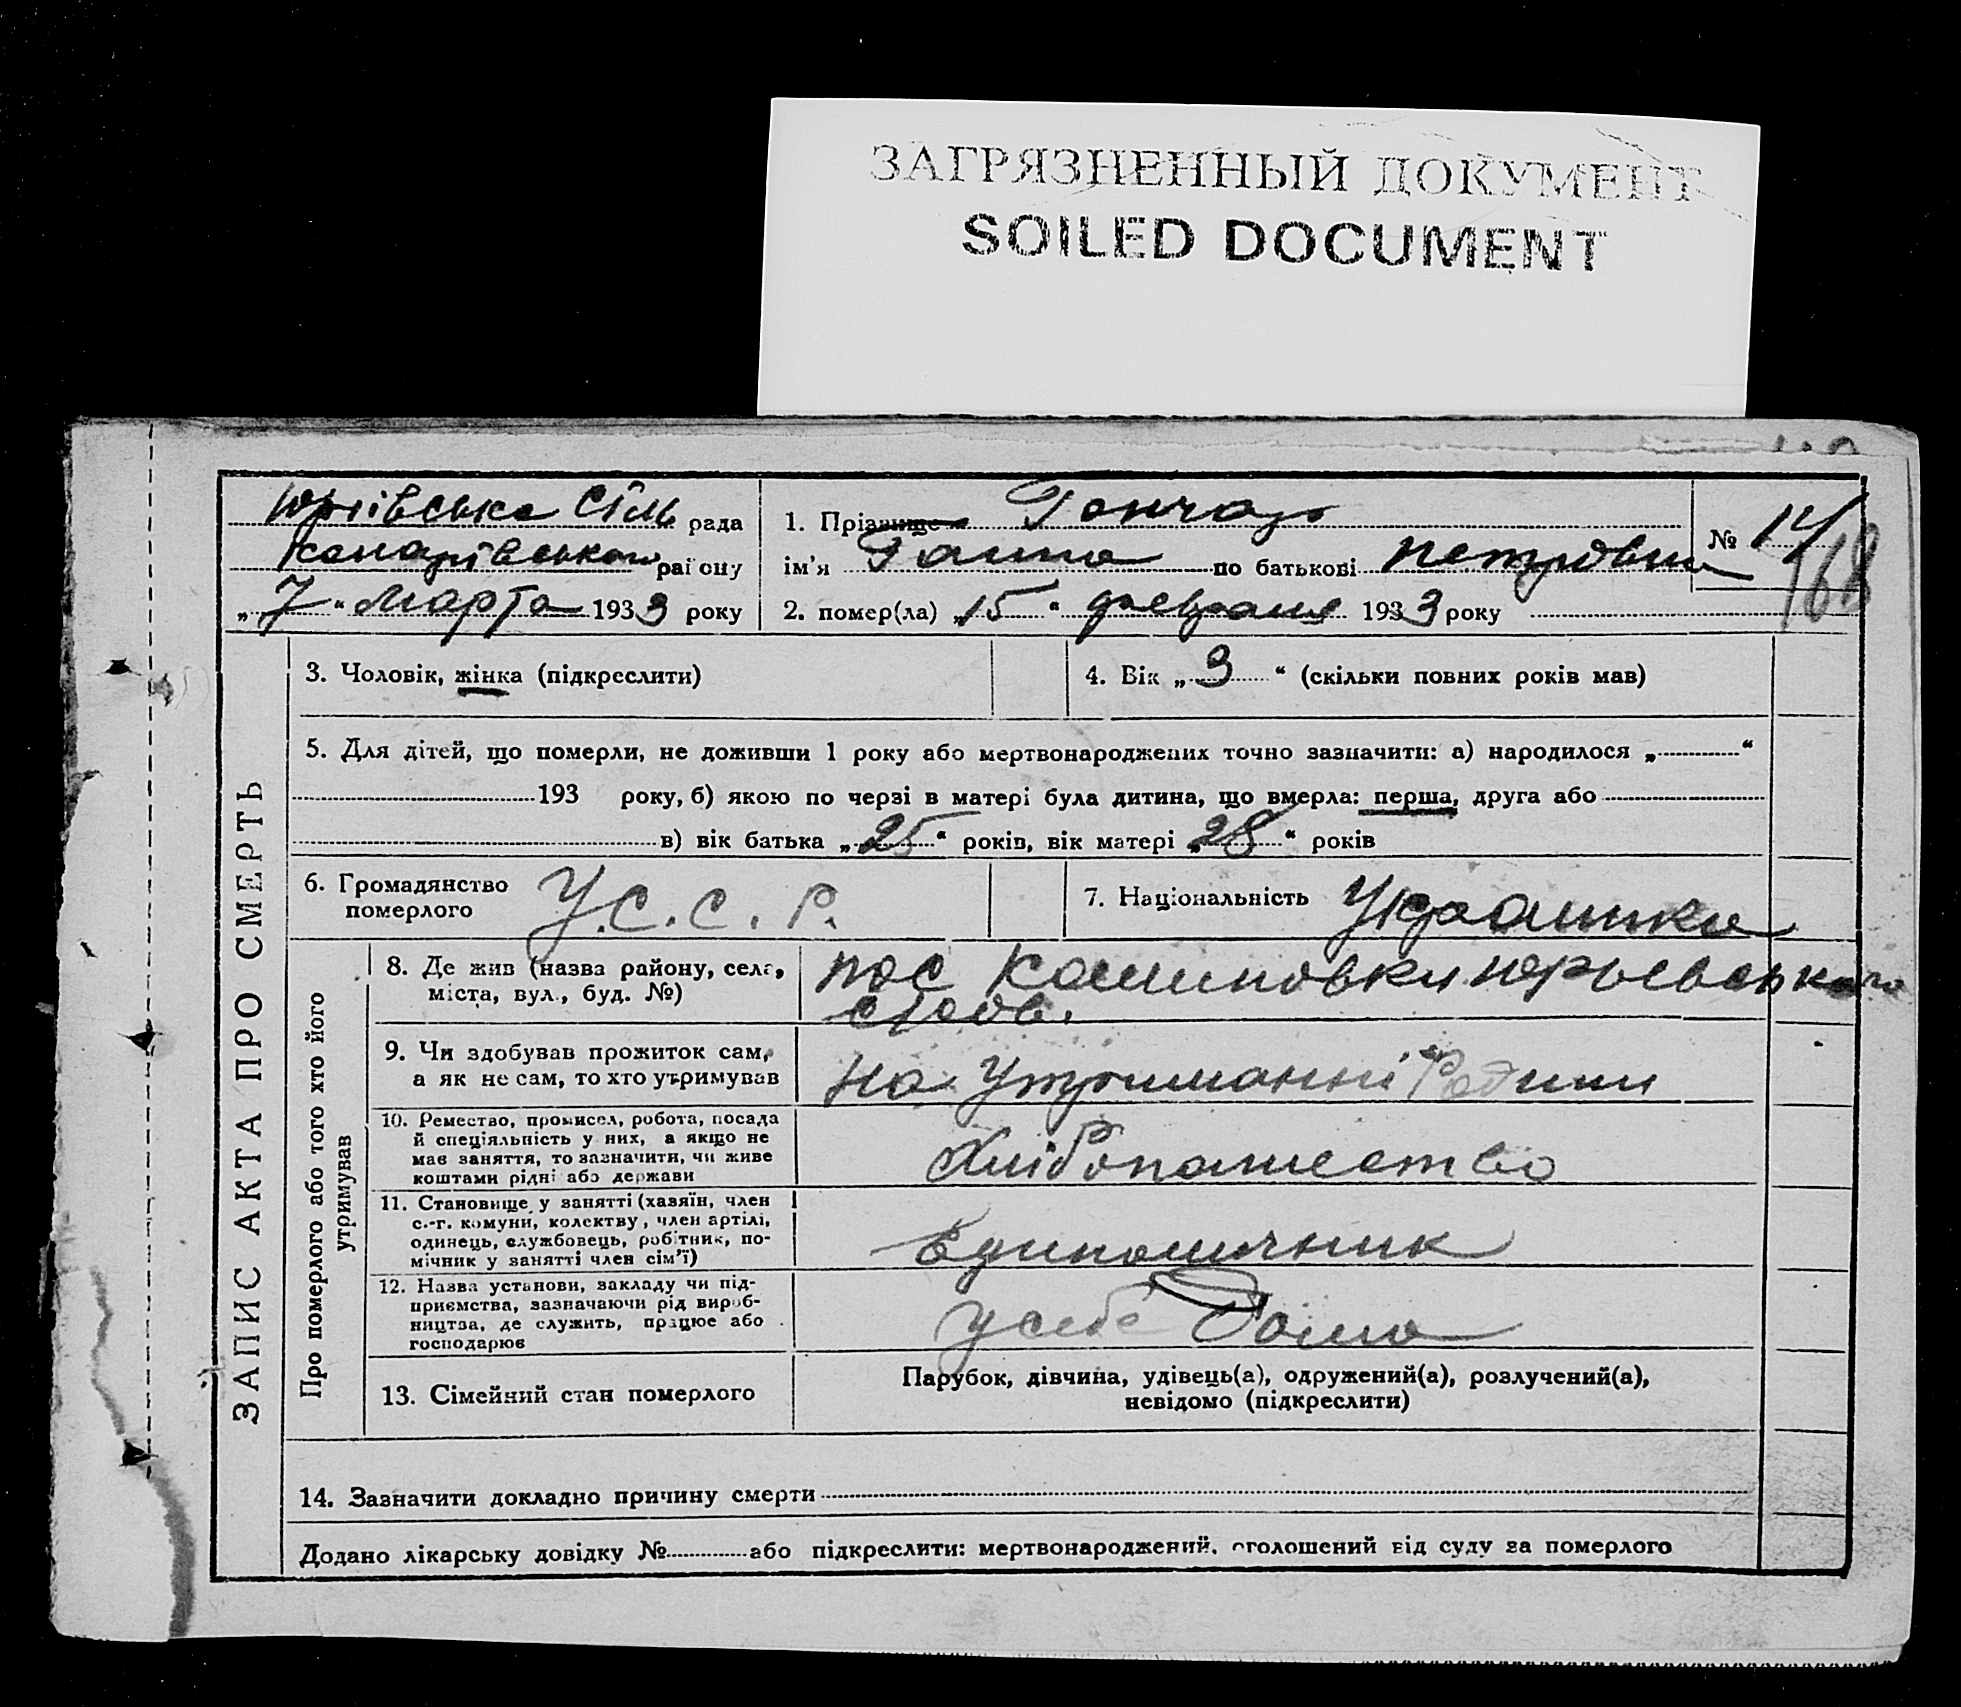 ЗАГРЯЗНЕННЫЙ ДОКУМЕНТ
SOILED DOCUMENT
ЗАПИС АКТА ПРО СМЕРТЬ
Юріївська Сіль рада
району
„7“ Марта 1933 року
1. Прізвище Гончар
ім'я Ганна по батькові Петровна
2. помер(ла) „15“ февраля 1933 року
№ 14
168
3. Чоловік, жінка (підкреслити)
4. Вік „3“ (скільки повних років мав)
5. Для дітей, що померли, не доживши 1 року або мертвонароджених точно зазначити: а) народилося „ “
193 року, б) якою по черзі в матері була дитина, що вмерла: перша, друга або
в) вік батька „25“ років, вік матері „28“ років
6. Громадянство
померлого
У.С.С.Р.
7. Національність Украинка
Про померлого або того хто його
утримував
8. Де жив (назва району, села,
міста, вул., буд. №)
пос
9. Чи здобував прожиток сам,
а як не сам, то хто утримував
На Утриманні Родини
10. Ремество, промисел, робота, посада
й спеціяльність у них, а якщо не
має заняття, то зазначити, чи живе
коштами рідні або держави
Хліборопашество
11. Становище у занятті (хазяїн, член
с.-г. комуни, колектву, член артілі,
одинець, службовець, робітник, по-
мічник у занятті член сім'ї)
Единоличник
12. Назва установи, закладу чи під-
приємства, зазначаючи рід вироб-
ництва, де служить, працює або
господарює
У себе Дома
13. Сімейний стан померлого
Парубок, дівчина, удівець(а), одружений(а), розлучений(а),
невідомо (підкреслити)
14. Зазначити докладно причину смерти
Додано лікарську довідку № або підкреслити: мертвонароджений, оголошений від суду за померлого